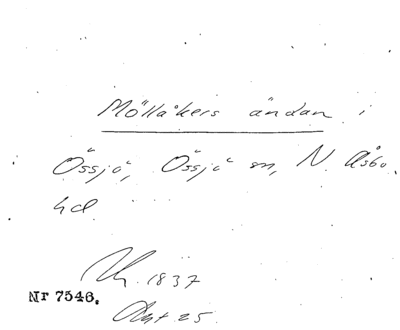 Möllåkers ändan i
Össjö, Össjö sn, N. Åsbo
hd.
1837
Nr 7546.
Akt 25